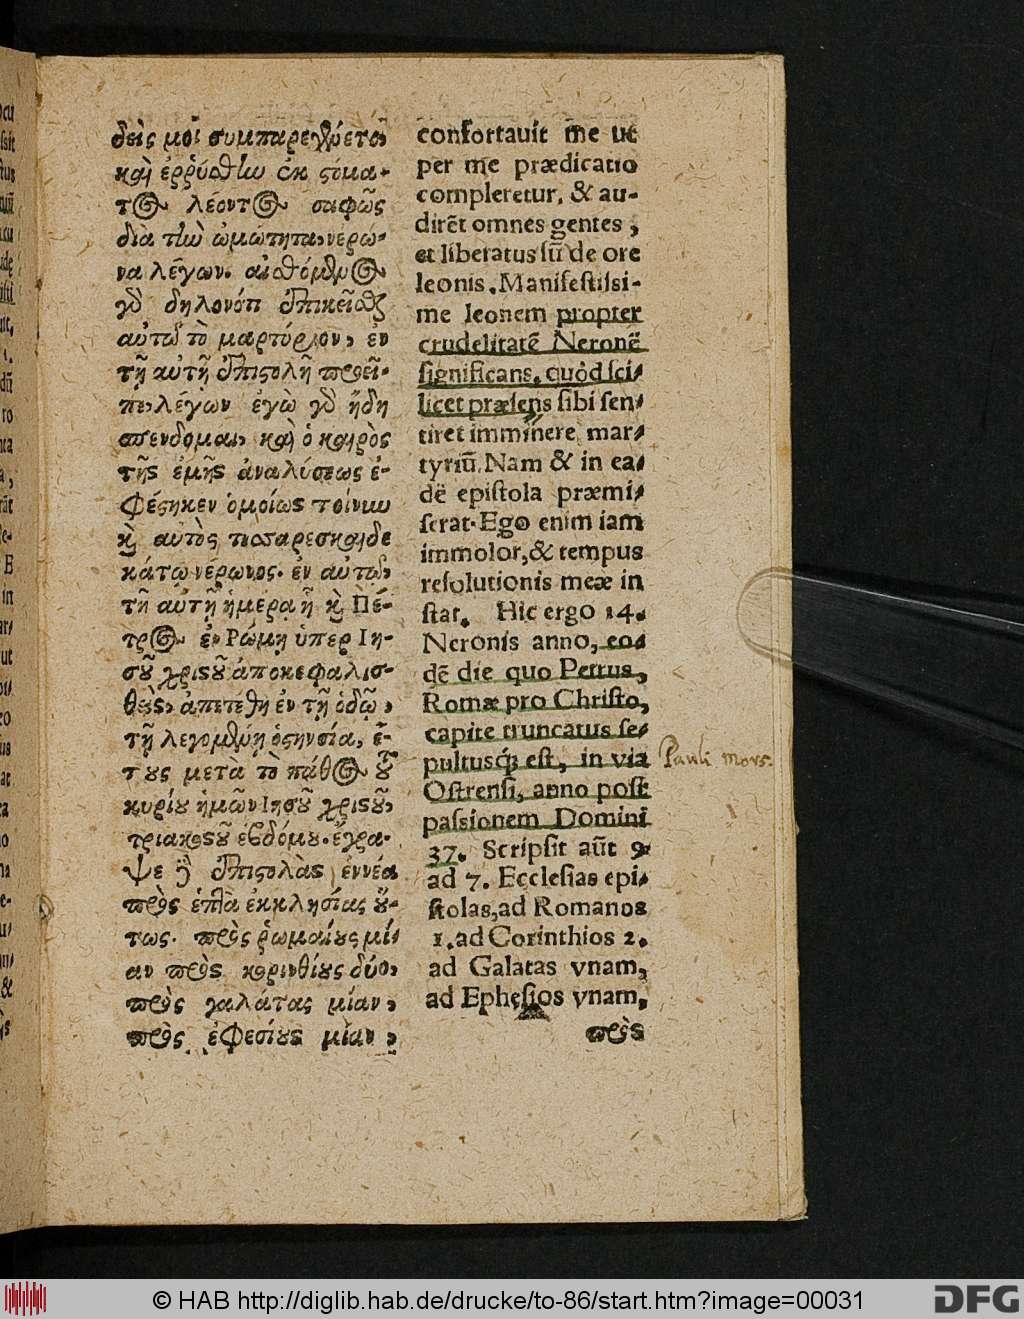 δείς μοι συμπαρεγένετο
καὶ ἐρρύσθην ἐκ στόμα-
τος λέοντος σαφῶς
διὰ τὴν ὠμότητα, νερώ-
να λέγων. αἰσθόμενος
γὰρ δηλονότι ἐπικεῖσθαι
αὐτῷ τὸ μαρτύριον, ἐν
τῇ αὐτῇ ἐπιστολῇ προεῖ-
πε, λέγων ἐγὼ γὰρ ἤδη
σπένδομαι, καὶ ὁ καιρὸς
τῆς ἐμῆς ἀναλύσεως ἐ-
φέστηκεν ὁμοίως τοίνυν
καὶ αὐτὸς τισσαρεσκαιδε
κάτῳ νέρωνος. ἐν αὐτῷ,
τῇ αὐτῇ ἡμέρᾳ ᾗ καὶ Πέ-
τρος ἐν Ρώμῃ ὑπερ Ιη-
σοῦ χριστοῦ ἀποκεφαλισ-
θεὶς, ἀπετέθη ἐν τῇ ὁδῷ,
τῇ λεγομένῃ ὁστηνσία, ἔ-
τους μετὰ τὸ πάθος τοῦ
κυρίου ἡμῶν Ιησοῦ χριστοῦ,
τριακοστοῦ ἑβδόμου. ἔγρα-
ψε δὲ ἐπιστολὰς ἐννέα
πρὸς ἑπτὰ ἐκκλησίας οὕ-
τως. πρὸς ῥωμαίους μί-
αν πρὸς κορινθίους δύο,
πρὸς γαλάτας μίαν,
πρὸς ἐφεσίους μίαν,
confortauit me ut
per me prædicatio
compleretur, & au-
dirēt omnes gentes ;
et liberatus sū de ore
leonis. Manifestissi-
me leonem propter
crudelitatē Neronē
significans, quòd sci-
licet præsens sibi sen-
tiret imminere mar-
tyriū. Nam & in ea-
dē epistola præmi-
serat. Ego enim iam
immolor, & tempus
resolutionis meæ in
stat. Hic ergo 14.
Neronis anno, eo-
dē die quo Petrus,
Romæ pro Christo,
capite truncatus se-
pultusq́; est, in via
Ostrensi, anno post
passionem Domini
37. Scripsit aūt 9
ad 7. Ecclesias epi-
stolas, ad Romanos
1. ad Corinthios 2.
ad Galatas vnam,
ad Ephesios vnam,
πρὸς
Pauli mors.
© HAB http://diglib.hab.de/drucke/to-86/start.htm?image=00031
DFG